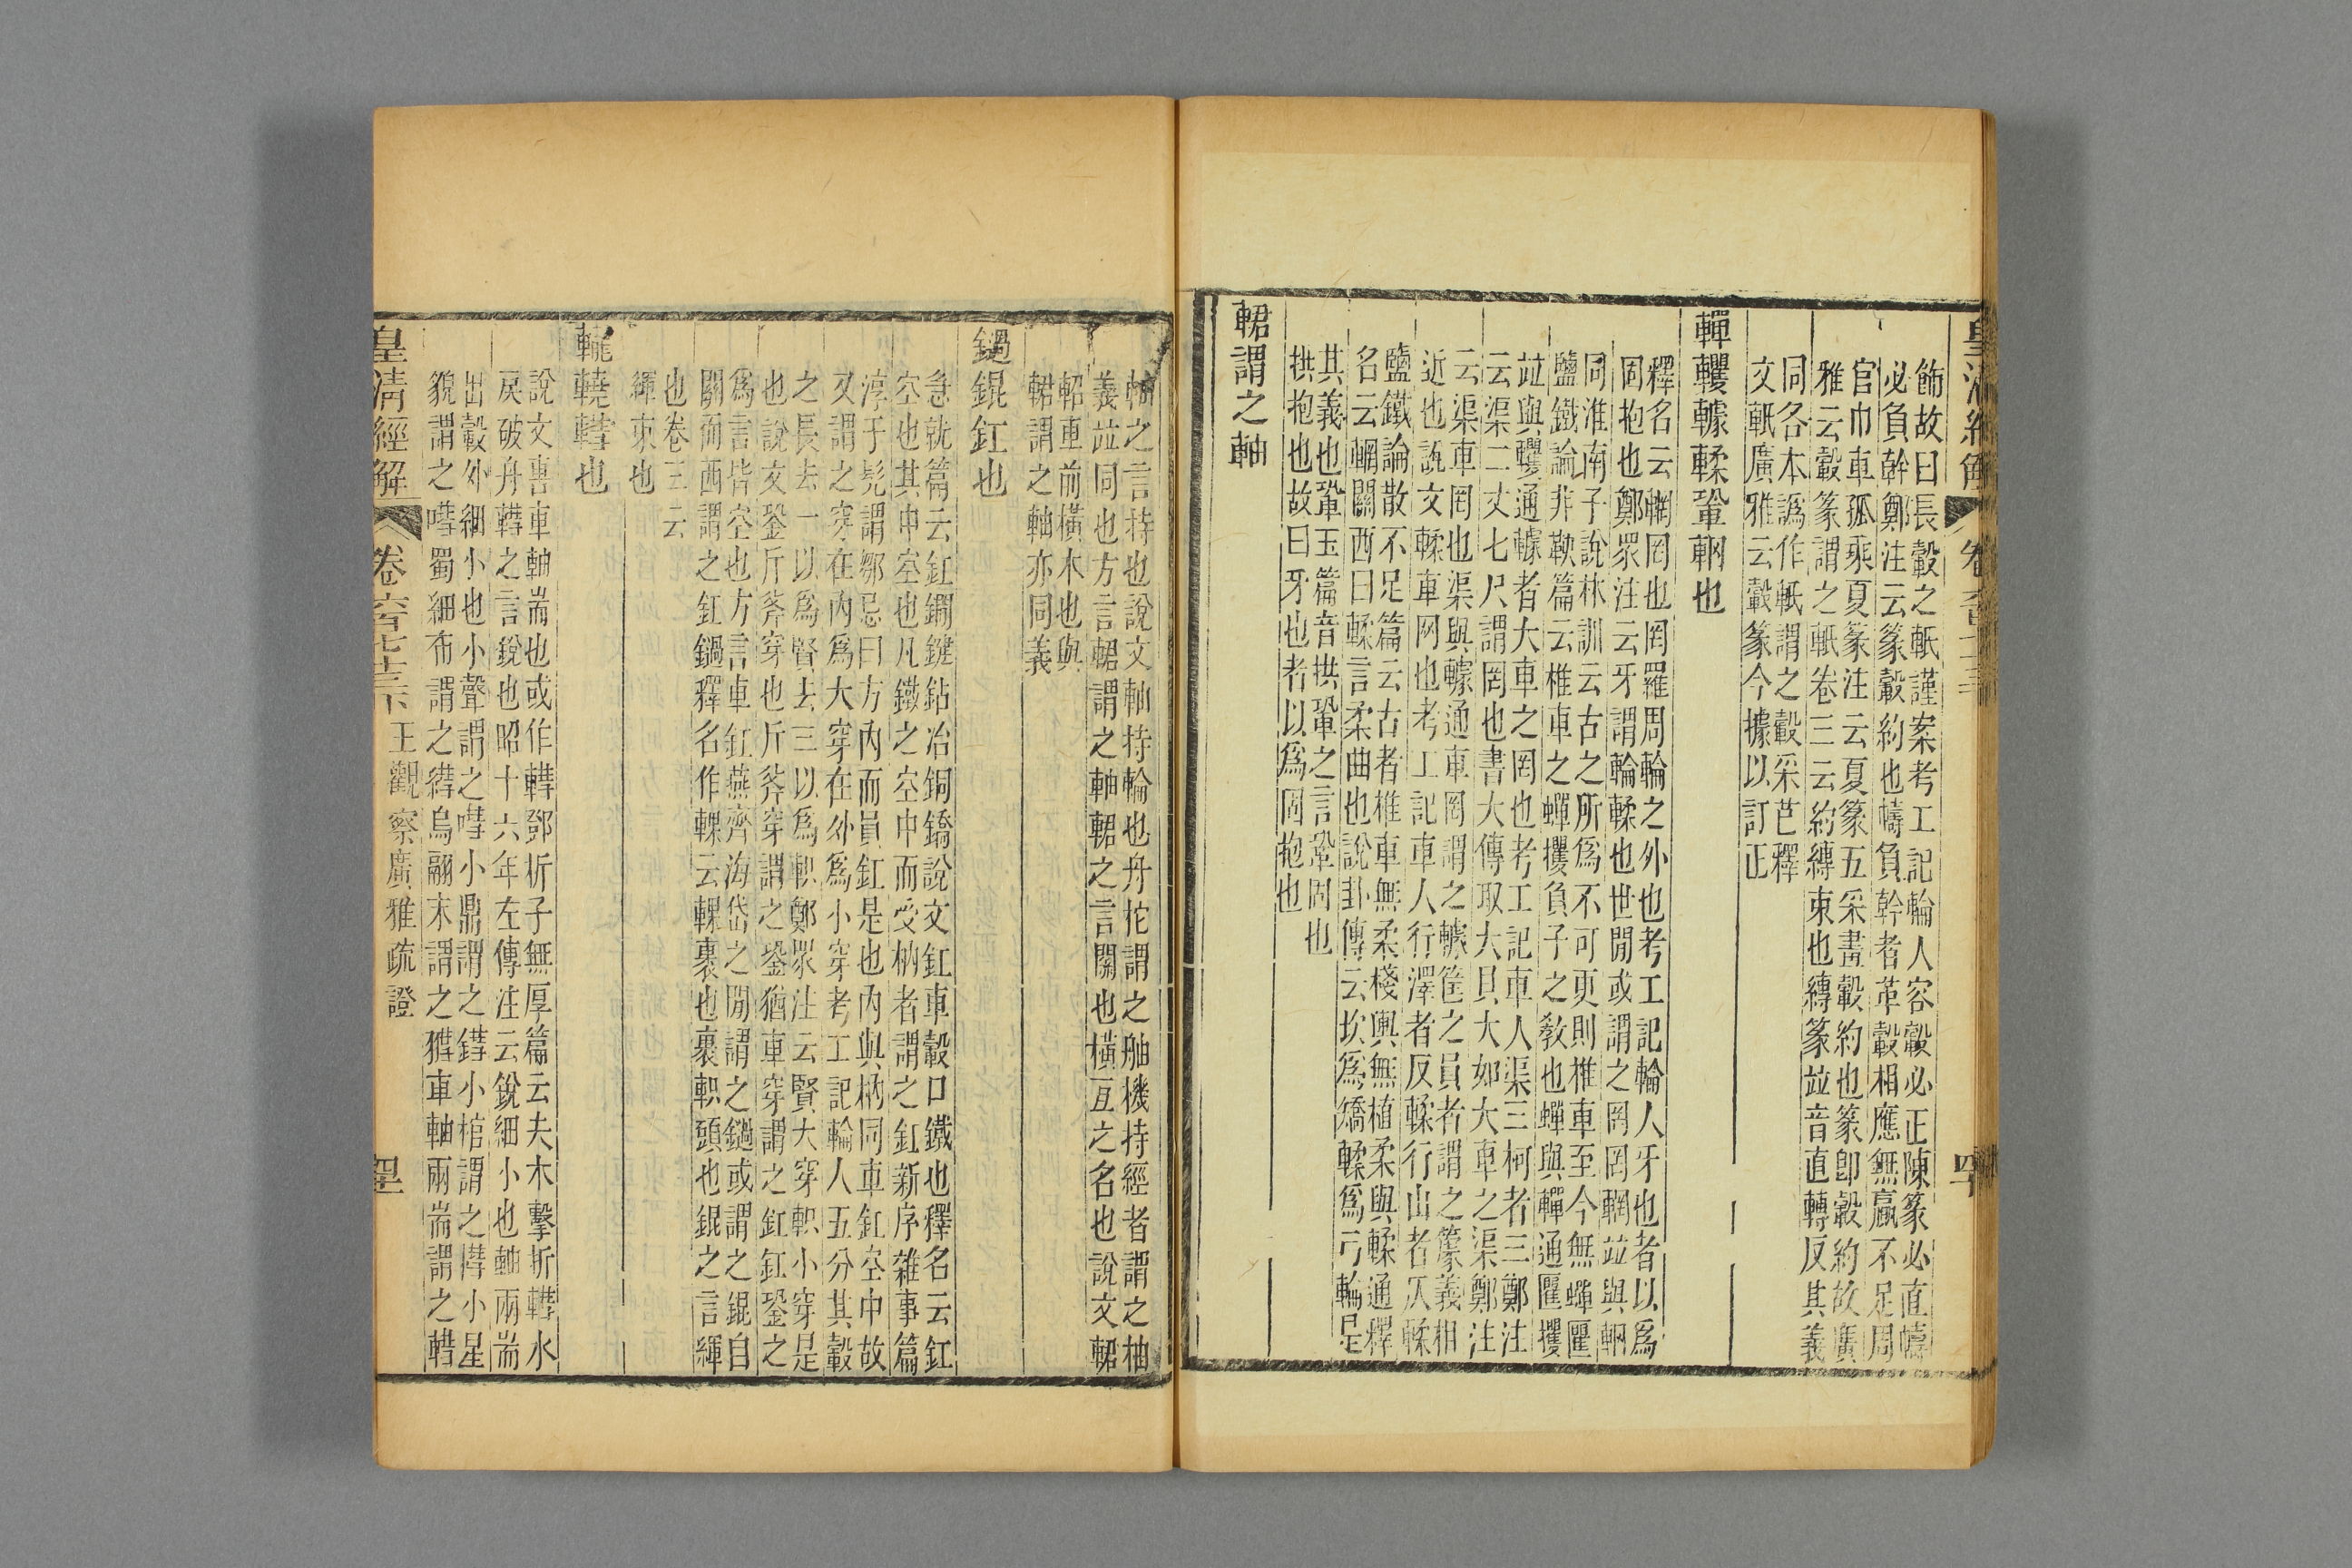 皇清經解
飾故曰長轂之軝謹案考工記輪人容轂必正陳篆必直幬
必負幹鄭注云篆轂約也幬負幹者革轂相應無贏不足周
官巾車孤乘夏篆注云夏篆五采畫轂約也篆卽轂約故廣
雅云轂篆謂之軝卷三云約縛束也縳篆竝音直轉反其義
同各本譌作軝謂之轂采芑釋
文軝廣雅云轂篆今據以訂正
轒轣轈輮鞏輞也
釋名云輞罔也罔羅周輪之外也考工記輪人牙也者以爲
固抱也鄭眾注云牙謂輪輮也世閒或謂之罔罔輞竝與輞
同淮南子說林訓云古之所爲不可更則椎車至今無蟬匷
鹽鐵論非鞅篇云椎車之蟬攫負子之敎也蟬與轒通匷攫
竝與轣通轈者大車之罔也考工記車人渠三柯者三鄭注
云渠二丈七尺謂罔也書大傳取大貝大如大車之渠鄭注
云渠車罔也渠與轈通車罔謂之轈筐之員者謂之籧義相
近也說文輮車网也考工記車人行澤者反輮行山者仄輮
鹽鐵論散不足篇云古者椎車無柔棧輿無植柔與輮通釋
名云輞關西曰輮言柔曲也說卦傳云坎爲矯輮爲弓輪是
其義也鞏玉篇音拱鞏之言鞏固也
拱抱也故曰牙也者以爲固抱也
輑謂之軸
軸之言持也說文軸持輪也舟柁謂之舳機持經者謂之柚
義竝同也方言輑謂之軸輑之言關也橫亙之名也說文輑
軺車前橫木也與
輑謂之軸亦同義
鍋錕釭也
急就篇云釭鐗鍵鉆冶銅鐈說文釭車轂口鐵也釋名云釭
空也其中空也凡鐵之空中而受枘者謂之釭新序雜事篇
淳于髡謂鄒忌曰方內而員釭是也內與枘同車釭空中故
又謂之穿在內爲大穿在外爲小穿考工記輪人五分其轂
之長去一以爲賢去三以爲軹鄭眾注云賢大穿軹小穿是
也說文銎斤斧穿也斤斧穿謂之銎猶車穿謂之釭釭銎之
爲言皆空也方言車釭燕齊海岱之閒謂之鍋或謂之錕自
關而西謂之釭鍋釋名作輠云輠裹也裹軹頭也錕之言緷
也卷三云
緷束也
轆轊也
說文軎車軸耑也或作轊鄧析子無厚篇云夫木擊折轊水
戾破舟轊之言銳也昭十六年左傳注云銳細小也軸兩耑
出轂外細小也小聲謂之嘒小鼎謂之鏏小棺謂之槥小星
貌謂之嘒蜀細布謂之繐鳥翮末謂之㹑車軸兩耑謂之轊
皇清經解 卷六百六十七下 王觀察廣雅疏證